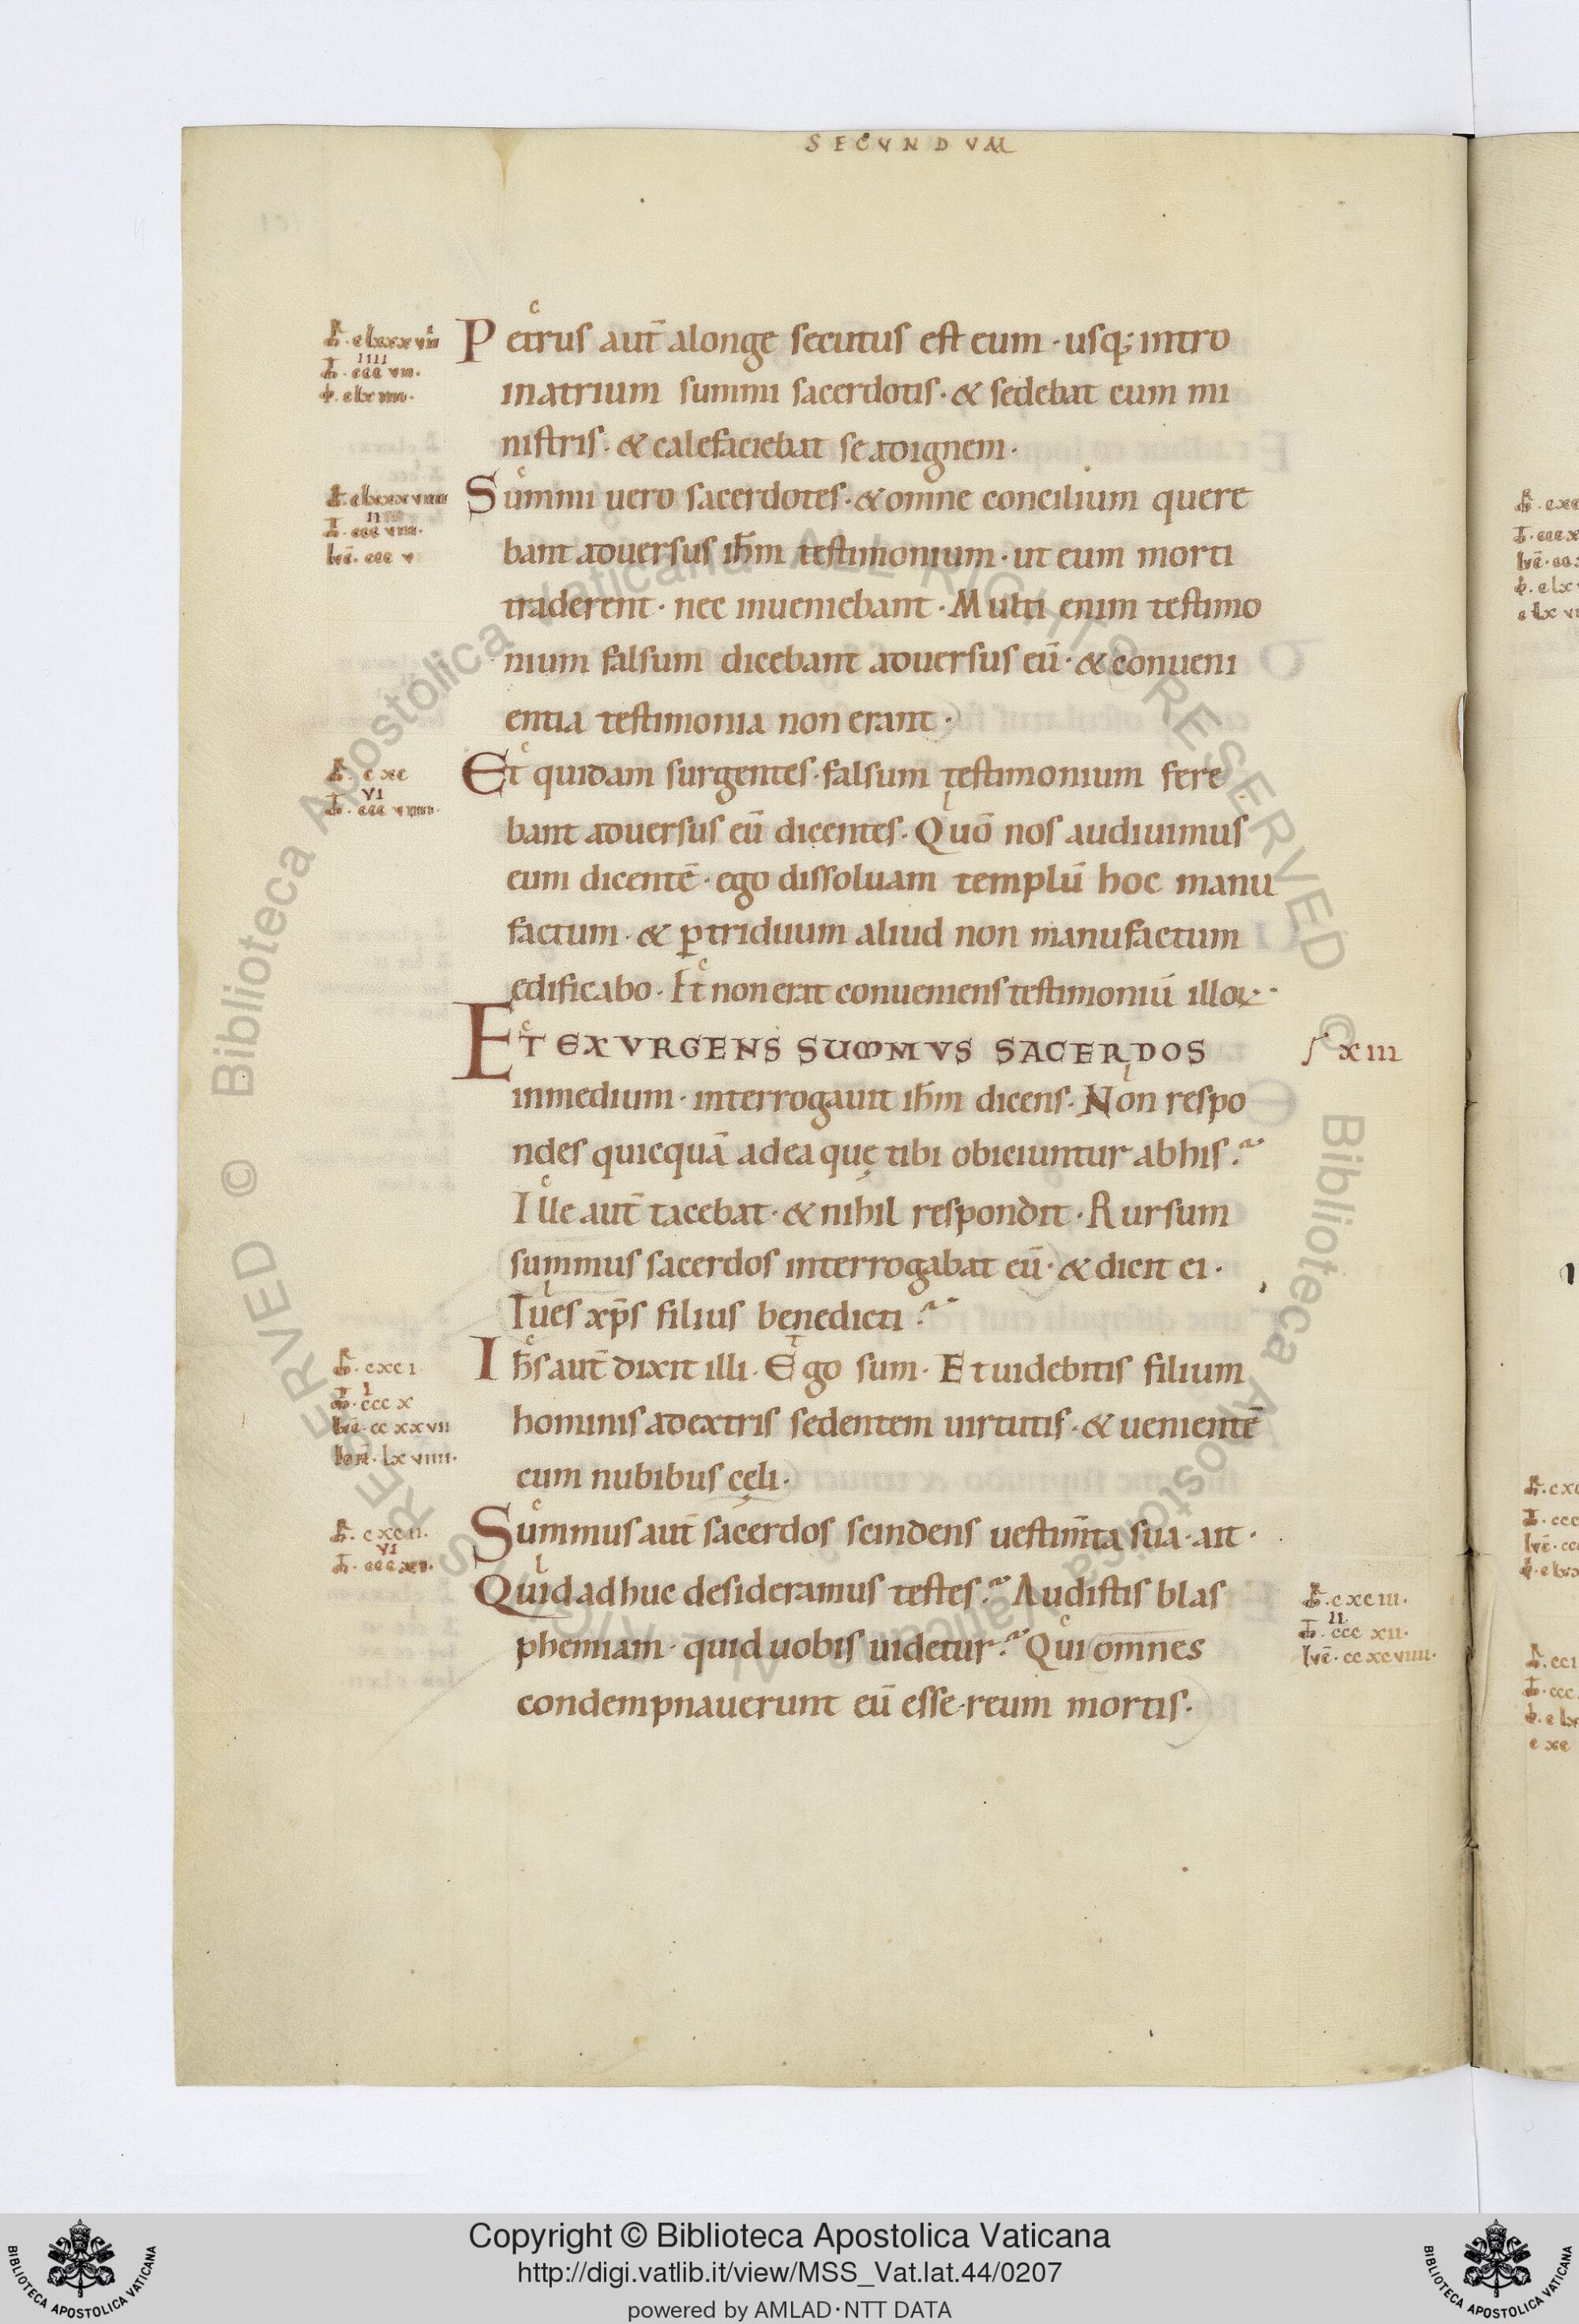 SECVNDVM
Petrus aut̄ alonge secutus est eum · usq; intro
inatrium summi sacerdotis · & sedebat cum mi
nistris · & calefaciebat se adignem ·
Summi uero sacerdotes · & omne concilium quere
bant aduersus ih̄m testimonium · ut eum morti
traderent · nec inueniebant · Multi enim testimo
nium falsum dicebant aduersus eū · & conueni
entia testimonia non erant ·
Et quidam surgentes · falsum testimonium fere
bant aduersus eū dicentes · Quō nos audiuimus
eum dicentē · ego dissoluam templū hoc manu
factum · & ꝑtriduum aliud non manufactum
edificabo · Et non erat conueniens testimoniū illoꝝ ·
ET EXVRGENS SUMMVS SACERDOS
ſ xiii
inmedium · interrogauit ih̄m dicens · Non respo
ndes quicquā ad ea quę tibi obiciuntur ab his ?
Ille aut̄ tacebat · & nihil respondit · Rursum
summus sacerdos interrogabat eū · & dicit ei ·
Tu es xp̄s filius benedicti ?
Ih̄s aut̄ dixit illi · Ego sum · Et uidebitis filium
hominis adextris sedentem uirtutis · & uenientē
cum nubibus cęli ·
Summus aut̄ sacerdos scindens uestim̄ta sua · ait ·
Quid adhuc desideramus testes ? Audistis blas
phemiam · quid uobis uidetur ? Qui omnes
condempnauerunt eū esse reum mortis ·
Copyright © Biblioteca Apostolica Vaticana
http://digi.vatlib.it/view/MSS_Vat.lat.44/0207
powered by AMLAD·NTT DATA
BIBLIOTECA APOSTOLICA VATICANA
BIBLIOTECA APOSTOLICA VATICANA